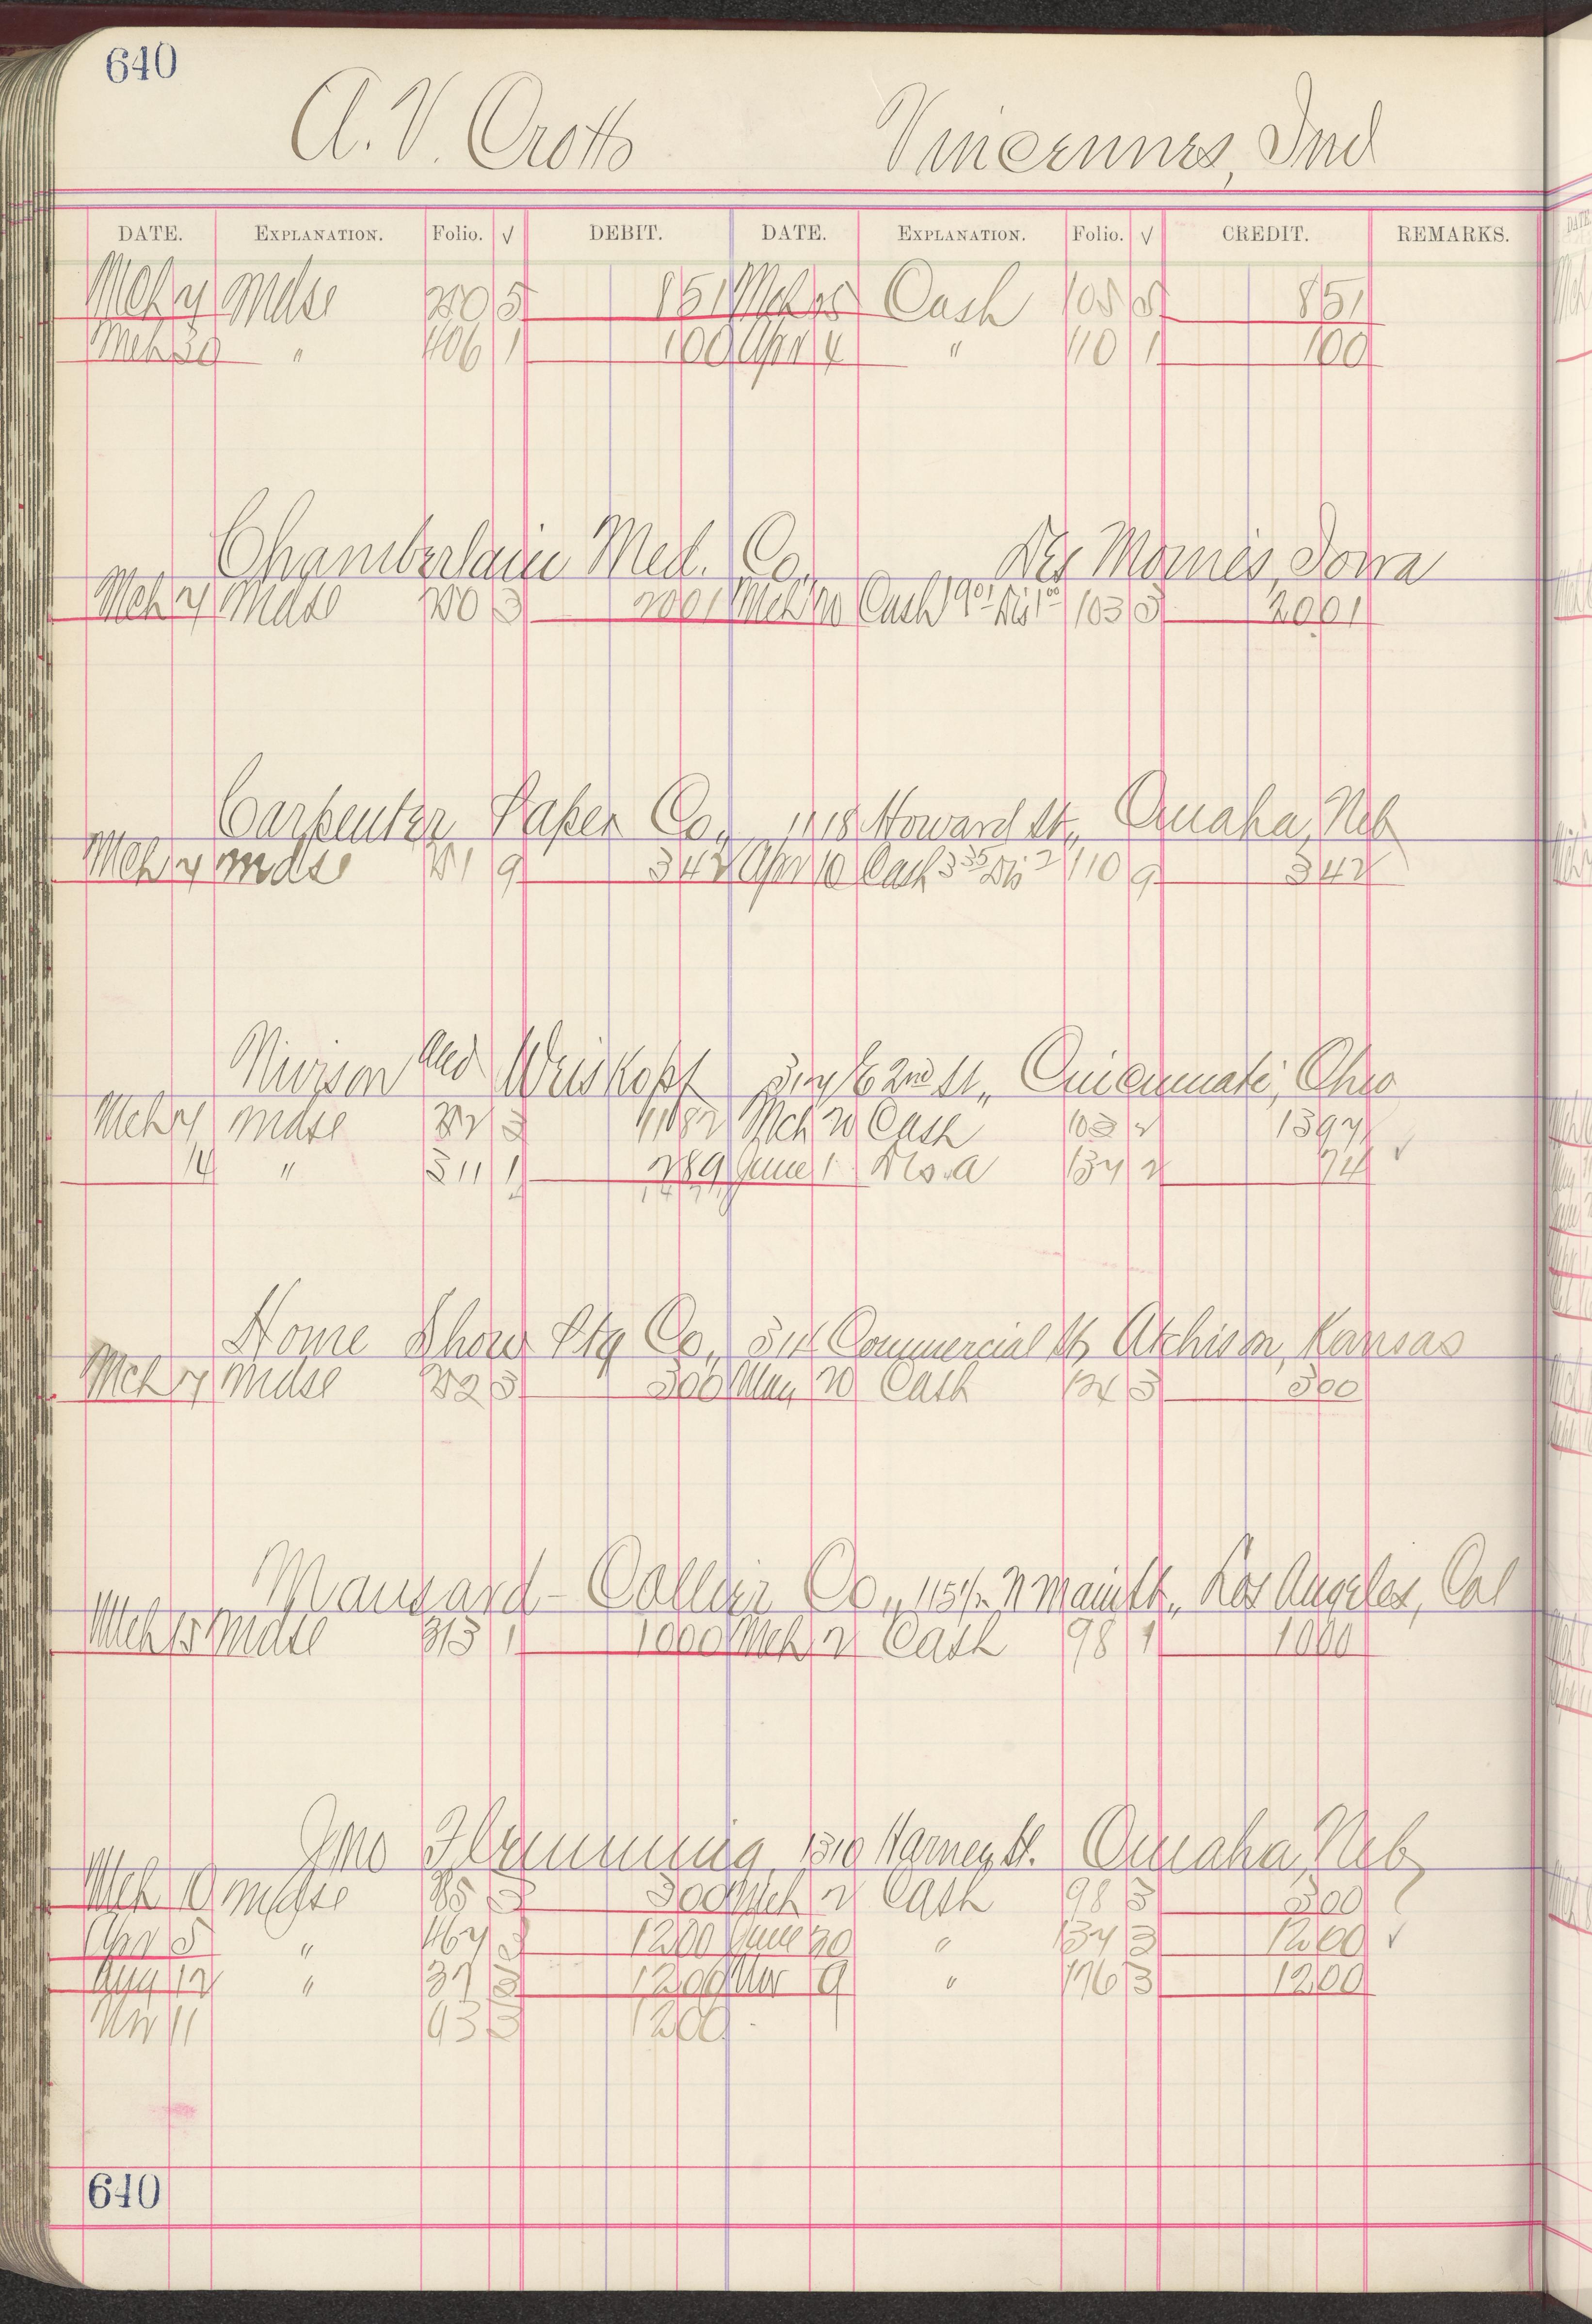 640
A. V. Crotts Vincennes, Ind
DATE. EXPLANATION. Folio. √ DEBIT. DATE. EXPLANATION. Folio. √ CREDIT. REMARKS.
Mch 7 Mdse 280 5 851 Mch 25 Cash 105 5 851
Mch 29 " 406 1 100 Apr 4 " 110 1 100
Chamberlain Med. Co. Des Moines, Iowa
Mch 7 Mdse 280 3 2001 Mch 20 Cash Dis 103 3 2001
Carpenter Paper Co., Howard St., Omaha, Neb
Mch 7 Mdse 281 9 342 Apr 10 Cash 335 Dis 7 110 9 342
and Weiskopf 2nd St., Cincinnati, Ohio
Mch 7 Mdse 1182 Mch 20 Cash 103 2 1397 √
14 " 311 1 289 June 1 137 2 74
Home Show Ptg Co., 514 Commercial St, Atchison, Kansas
Mch 7 Mdse 3 300 May 20 Cash 3 300
Mansard-Collier Co., 115½ N Main St., Los Angeles, Cal
Mch 15 Mdse 313 1 1000 Mch 2 Cash 98 1 1000
Jno Flemming, 1310 Harney St. Omaha, Neb
Mch 10 Mdse 3 300 Mch 2 Cash 98 3 300
Apr 5 " 467 3 1200 June 30 " 137 3 1200 √
Aug 12 " 37 3 1200 Nov 9 " 176 3 1200
Nov 11 93 3 1200
640